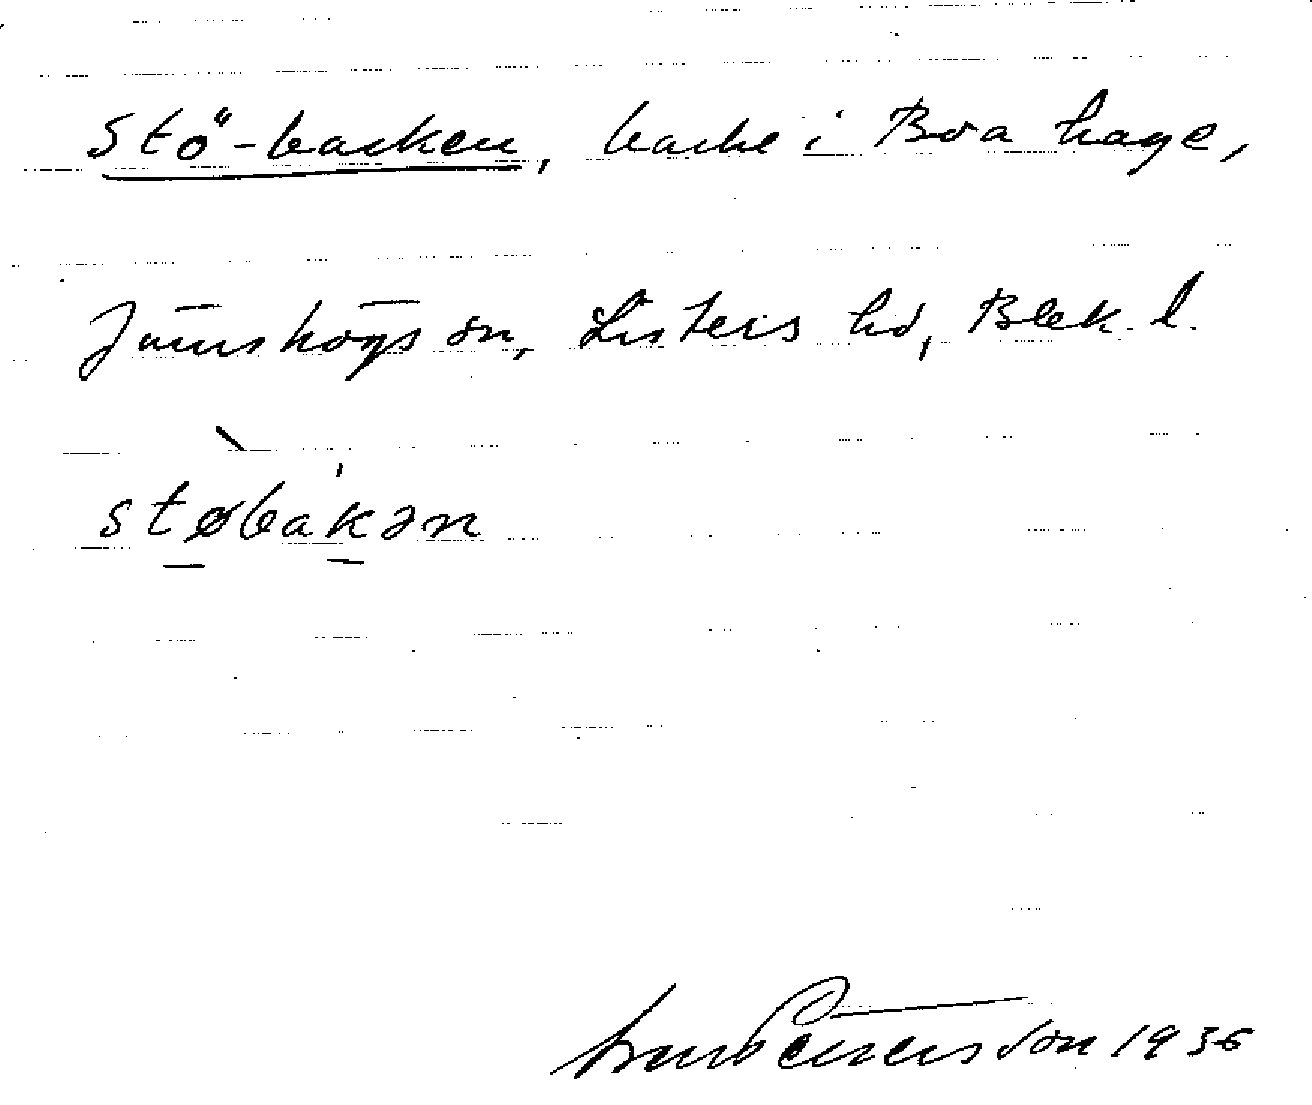 Stö-backen, backe i Boa hage,
Jämshögs sn, Listers hd, Blek. l.
støbakən
Petersson 1936